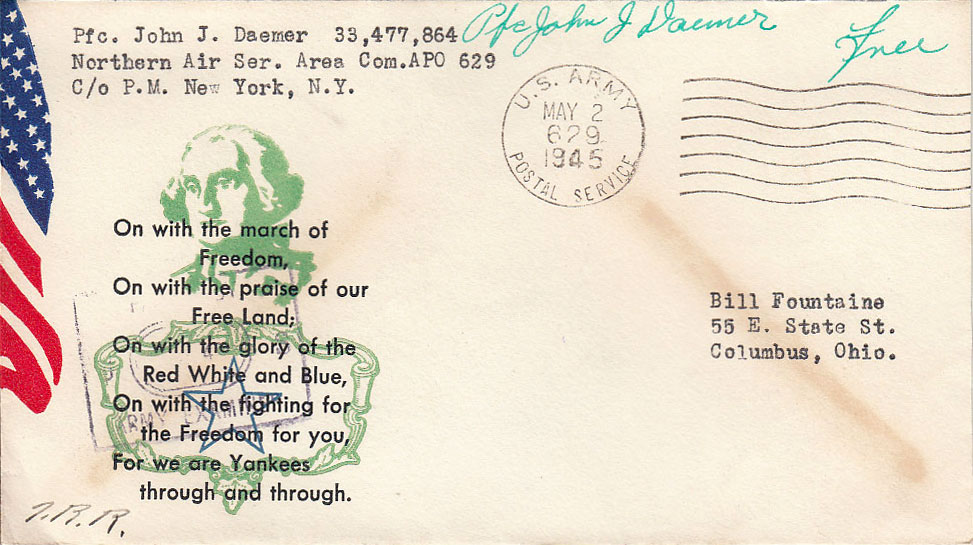 Pfc. John J. Daemer 33,477,864
Northern Air Ser. Area Com.APO 629
C/o P.M. New York, N.Y.
Pfc John J Daemer
Free
U.S. ARMY
MAY 2
629
1945
POSTAL SERVICE
On with the march of
Freedom,
On with the praise of our
Free Land;
On with the glory of the
Red White and Blue,
On with the fighting for
the Freedom for you,
For we are Yankees
through and through.
ARMY EXAMINER
Bill Fountaine
55 E. State St.
Columbus, Ohio.